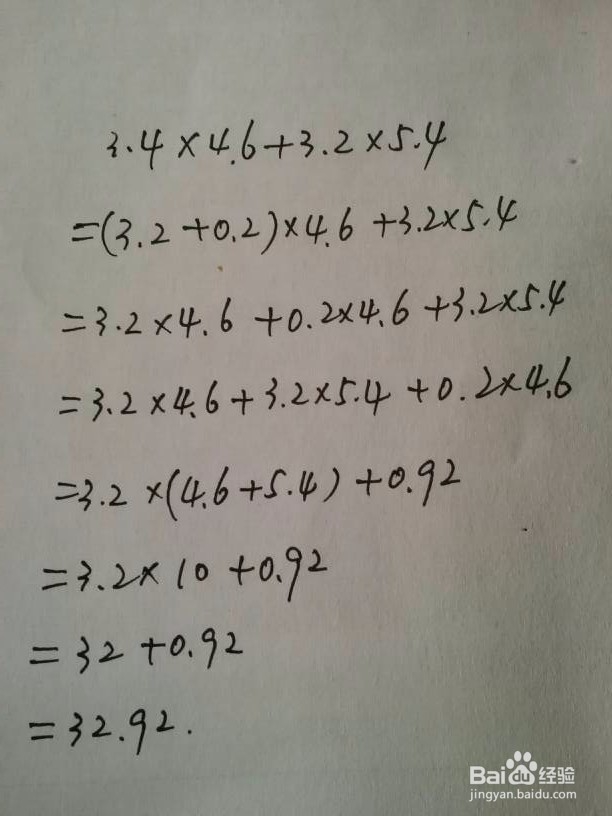 3.4×4.6+3.2×5.4
=(3.2+0.2)×4.6+3.2×5.4
=3.2×4.6+0.2×4.6+3.2×5.4
=3.2×4.6+3.2×5.4+0.2×4.6
=3.2×(4.6+5.4)+0.92
=3.2×10+0.92
=32+0.92
=32.92.
Baidu经验
jingyan.baidu.com